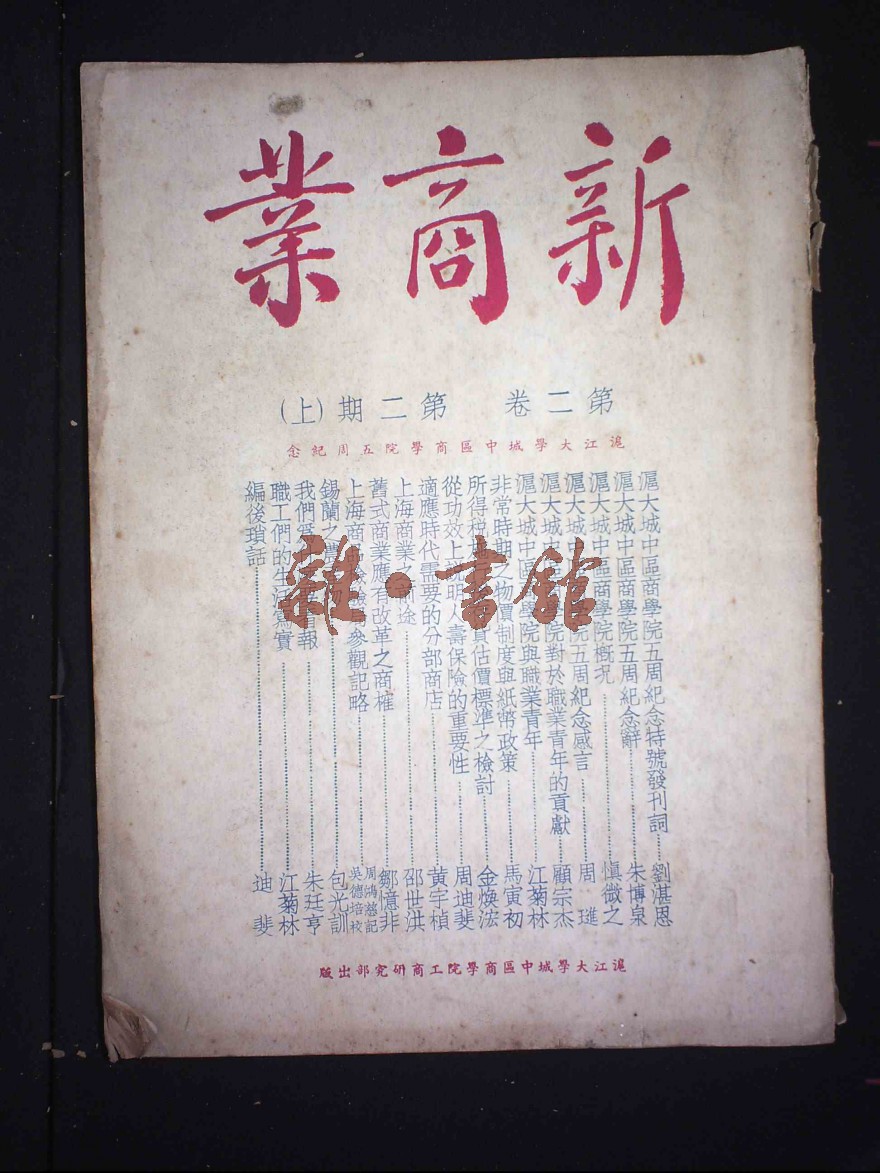 新商業
第二卷 第二期(上)
滬江大學城中區商學院五周紀念
滬大城中區商學院五周紀念特號發刊詞……劉湛恩
滬大城中區商學院五周紀念辭……朱博泉
滬大城中區商學院概況……慎微之
滬大城中區商學院五周紀念感言……周
滬大城中區 院對於職業青年的貢獻……顧宗杰
滬大城中區 學院與職業青年……江菊林
非常時期之物價制度與紙幣政策……馬寅初
所得稅 資估價標準之檢討……金煥浤
從功效上 明人壽保險的重要性……周迪斐
適應時代需要的分部商店……黃宇楨
上海商業之 途……邵世洪
舊式商業應有改革之商榷……鄒憶非
上海商 參觀記略……周鴻慈記 吳德培校
錫蘭之 ……包光訓
我們 情報……朱廷亨
職工們的生活寫實……江菊林
編後瑣話……迪斐
滬江大學城中區商學院工商研究部出版
雜·書館